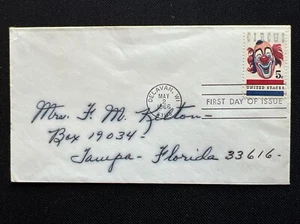 CIRCUS
5c
UNITED STATES
DELAVAN, WI
MAY
2
1966
FIRST DAY OF ISSUE
Mrs. F. M. Kelton-
Box 19034-
Tampa- Florida 33616-